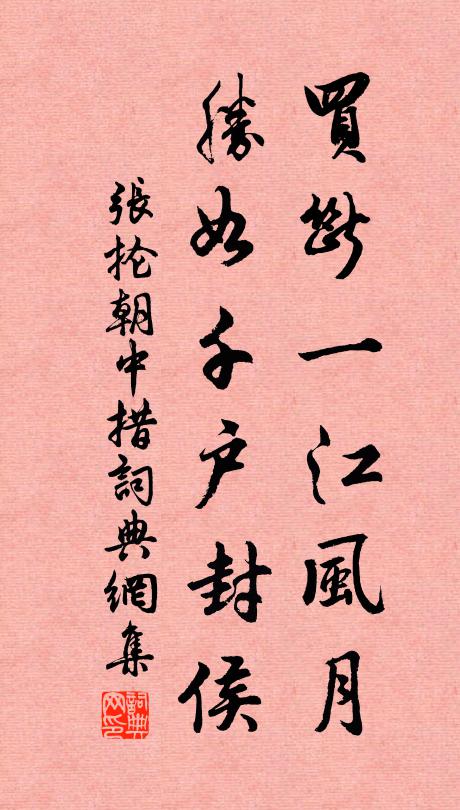 買斷一江風月
勝如千户封侯
張掄朝中措詞典網集
詞典網印